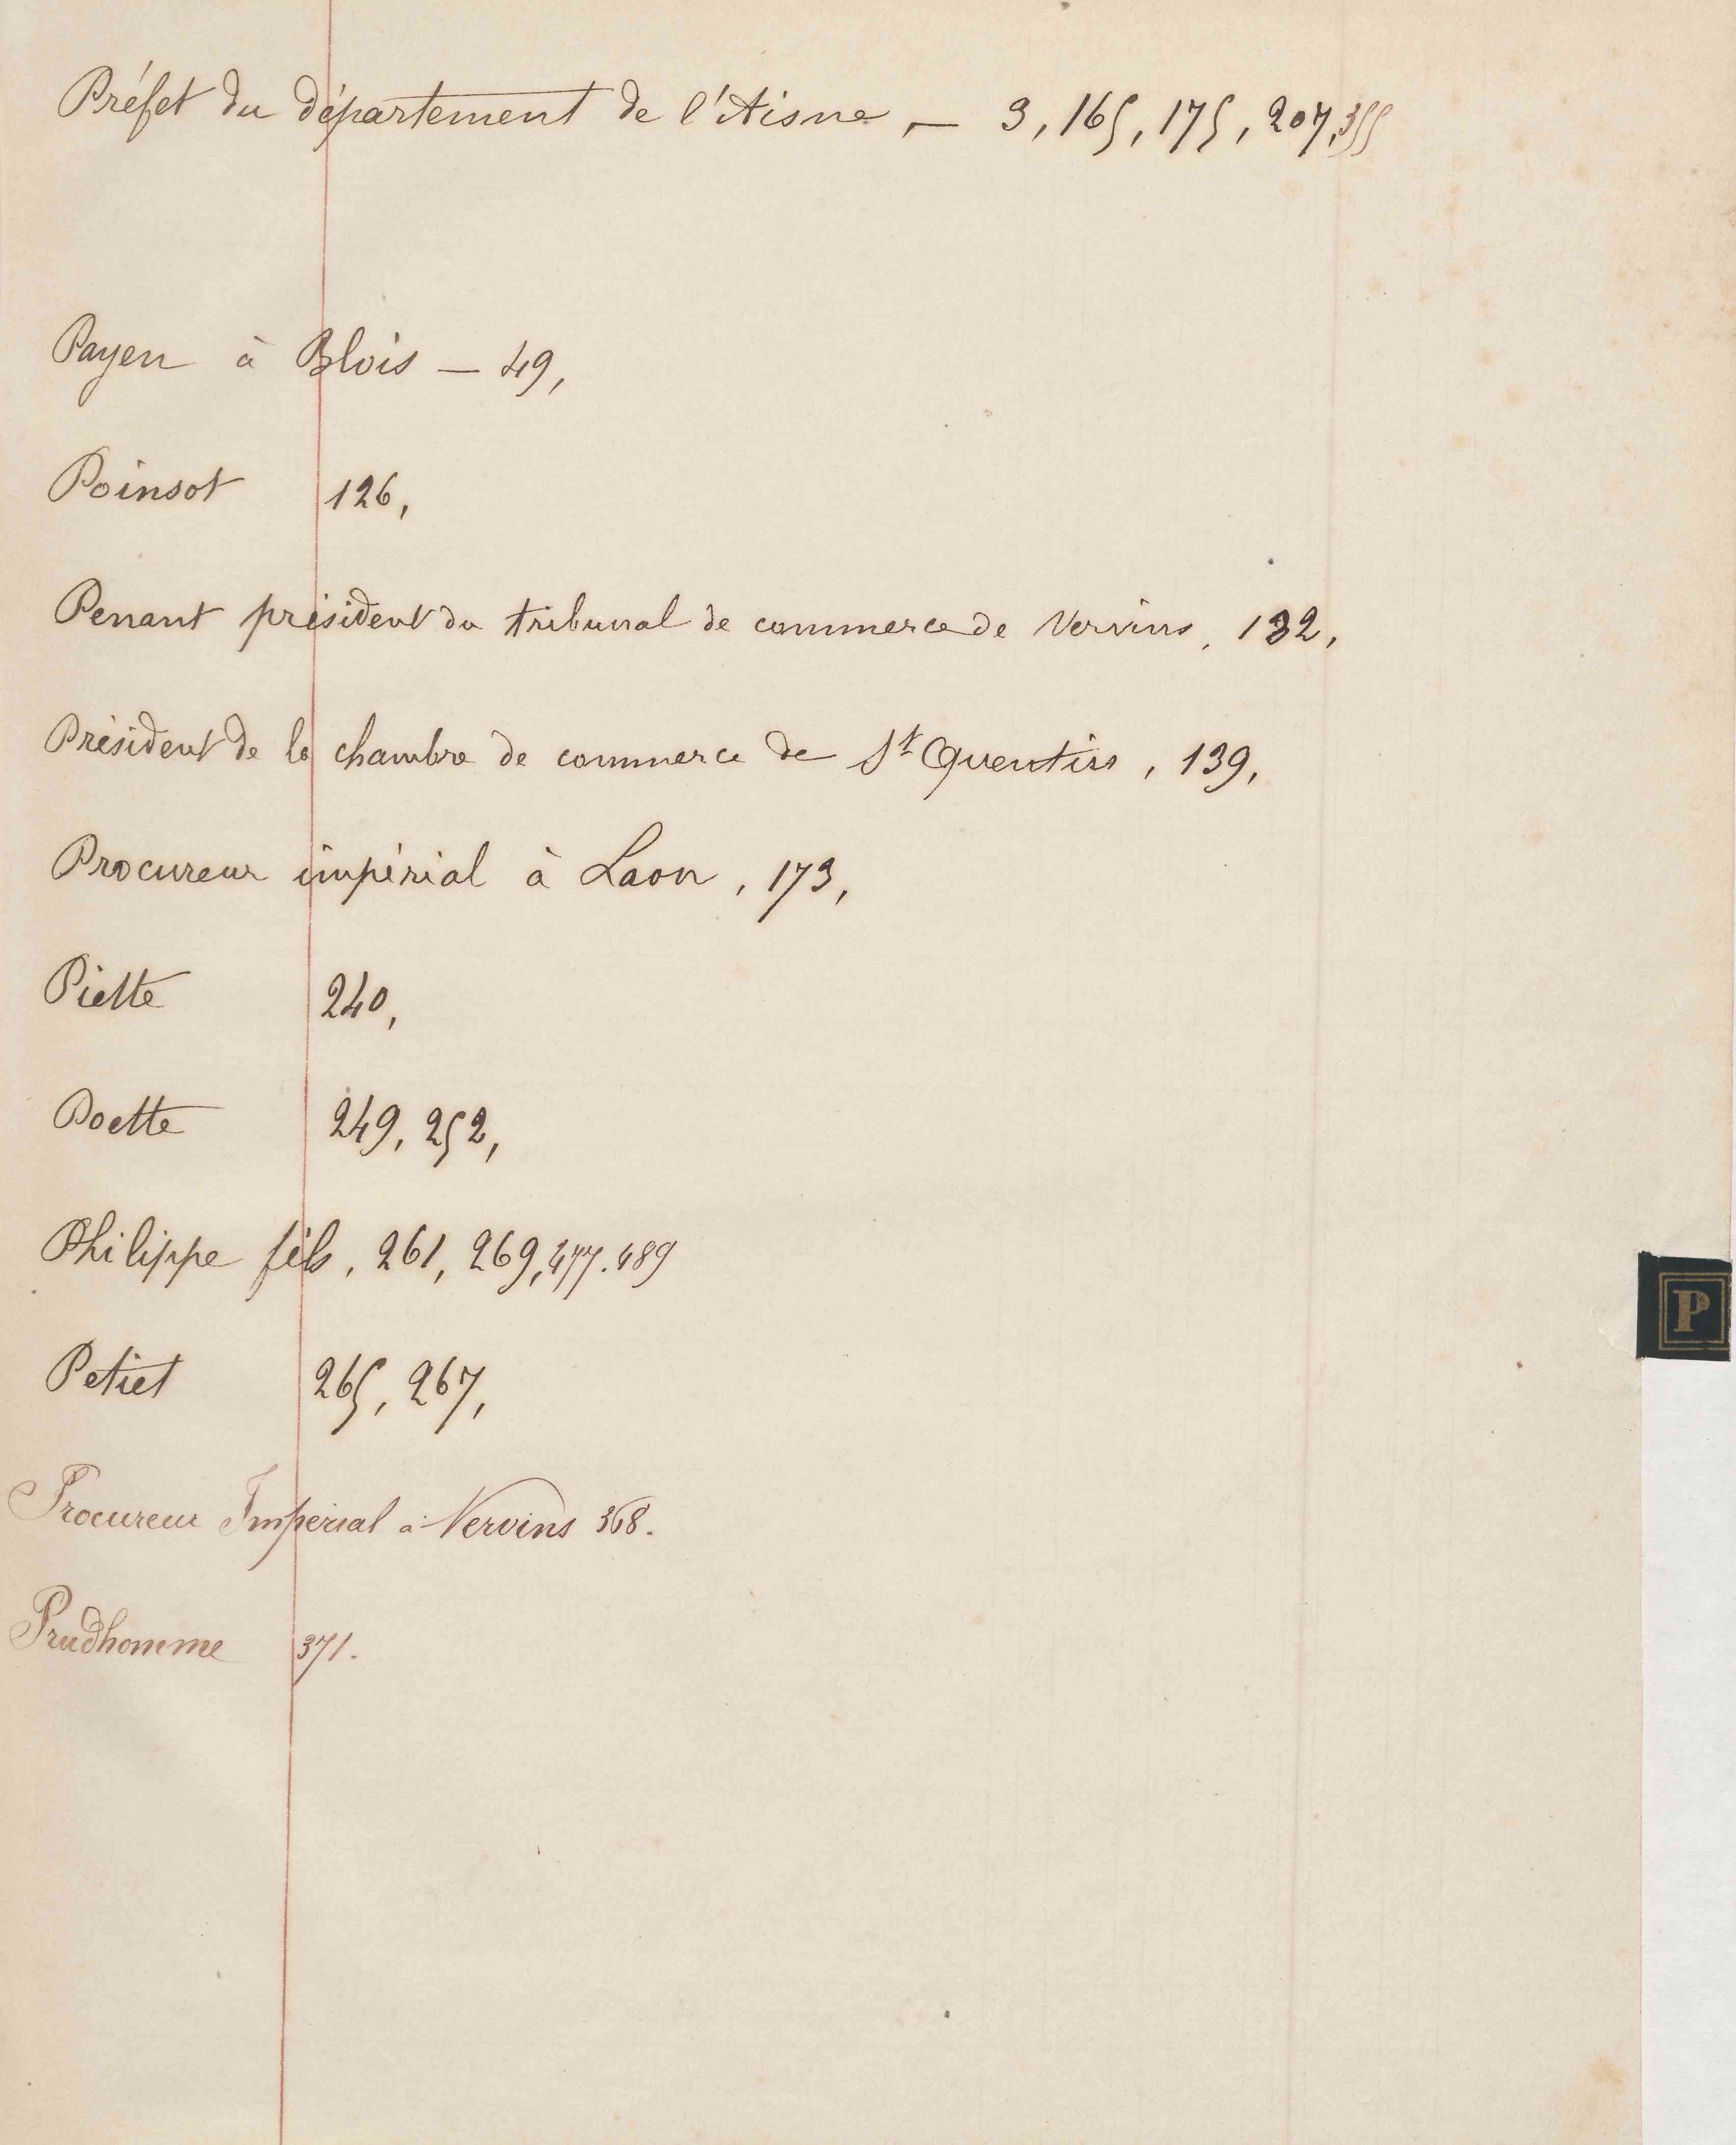 Préfet du département de l'Aisne, — 3, 165, 175, 207, 355
Payen à Blois — 49,
Poinsot 126,
Penant président du tribunal de commerce de Vervins, 132,
Président de la chambre de commerce de St Quentin, 139,
Procureur impérial à Laon, 173,
Piette 240,
Poette 249, 252,
Philippe fils, 261, 269, 477. 489
P
Petiet 265, 267,
Procureur Impérial à Vervins 368.
Prudhomme 371.